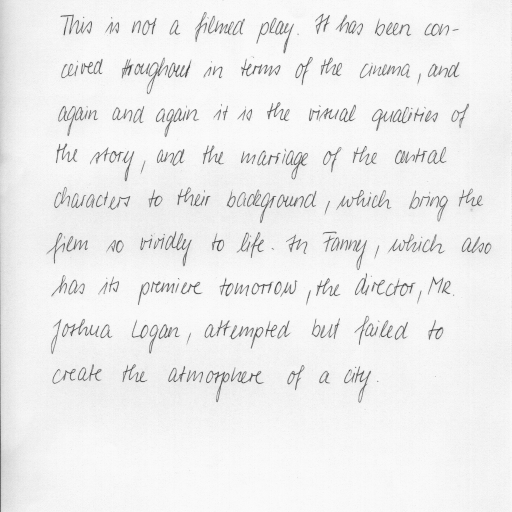 This is not a filmed play. It has been con-
ceived troughout in terms of the cinema, and
again and again it is the visual qualities of
the story, and the marriage of the central
characters to their background, which bring the
film so vividly to life. In Fanny, which also
has its premiere tomorrow, the director, Mr.
Joshua Logan, attempted but failed to
create the atmosphere of a city.